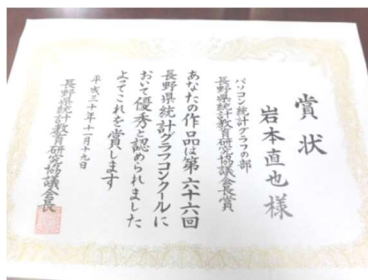 賞状
岩本直也様
パソコン統計グラフの部
長野県統計教育研究協議会長賞
あなたの作品は第六十六回
長野県統計グラフコンクールに
おいて優秀と認められました
よってこれを賞します
平成三十年十一月十九日
長野県統計教育研究協議会長